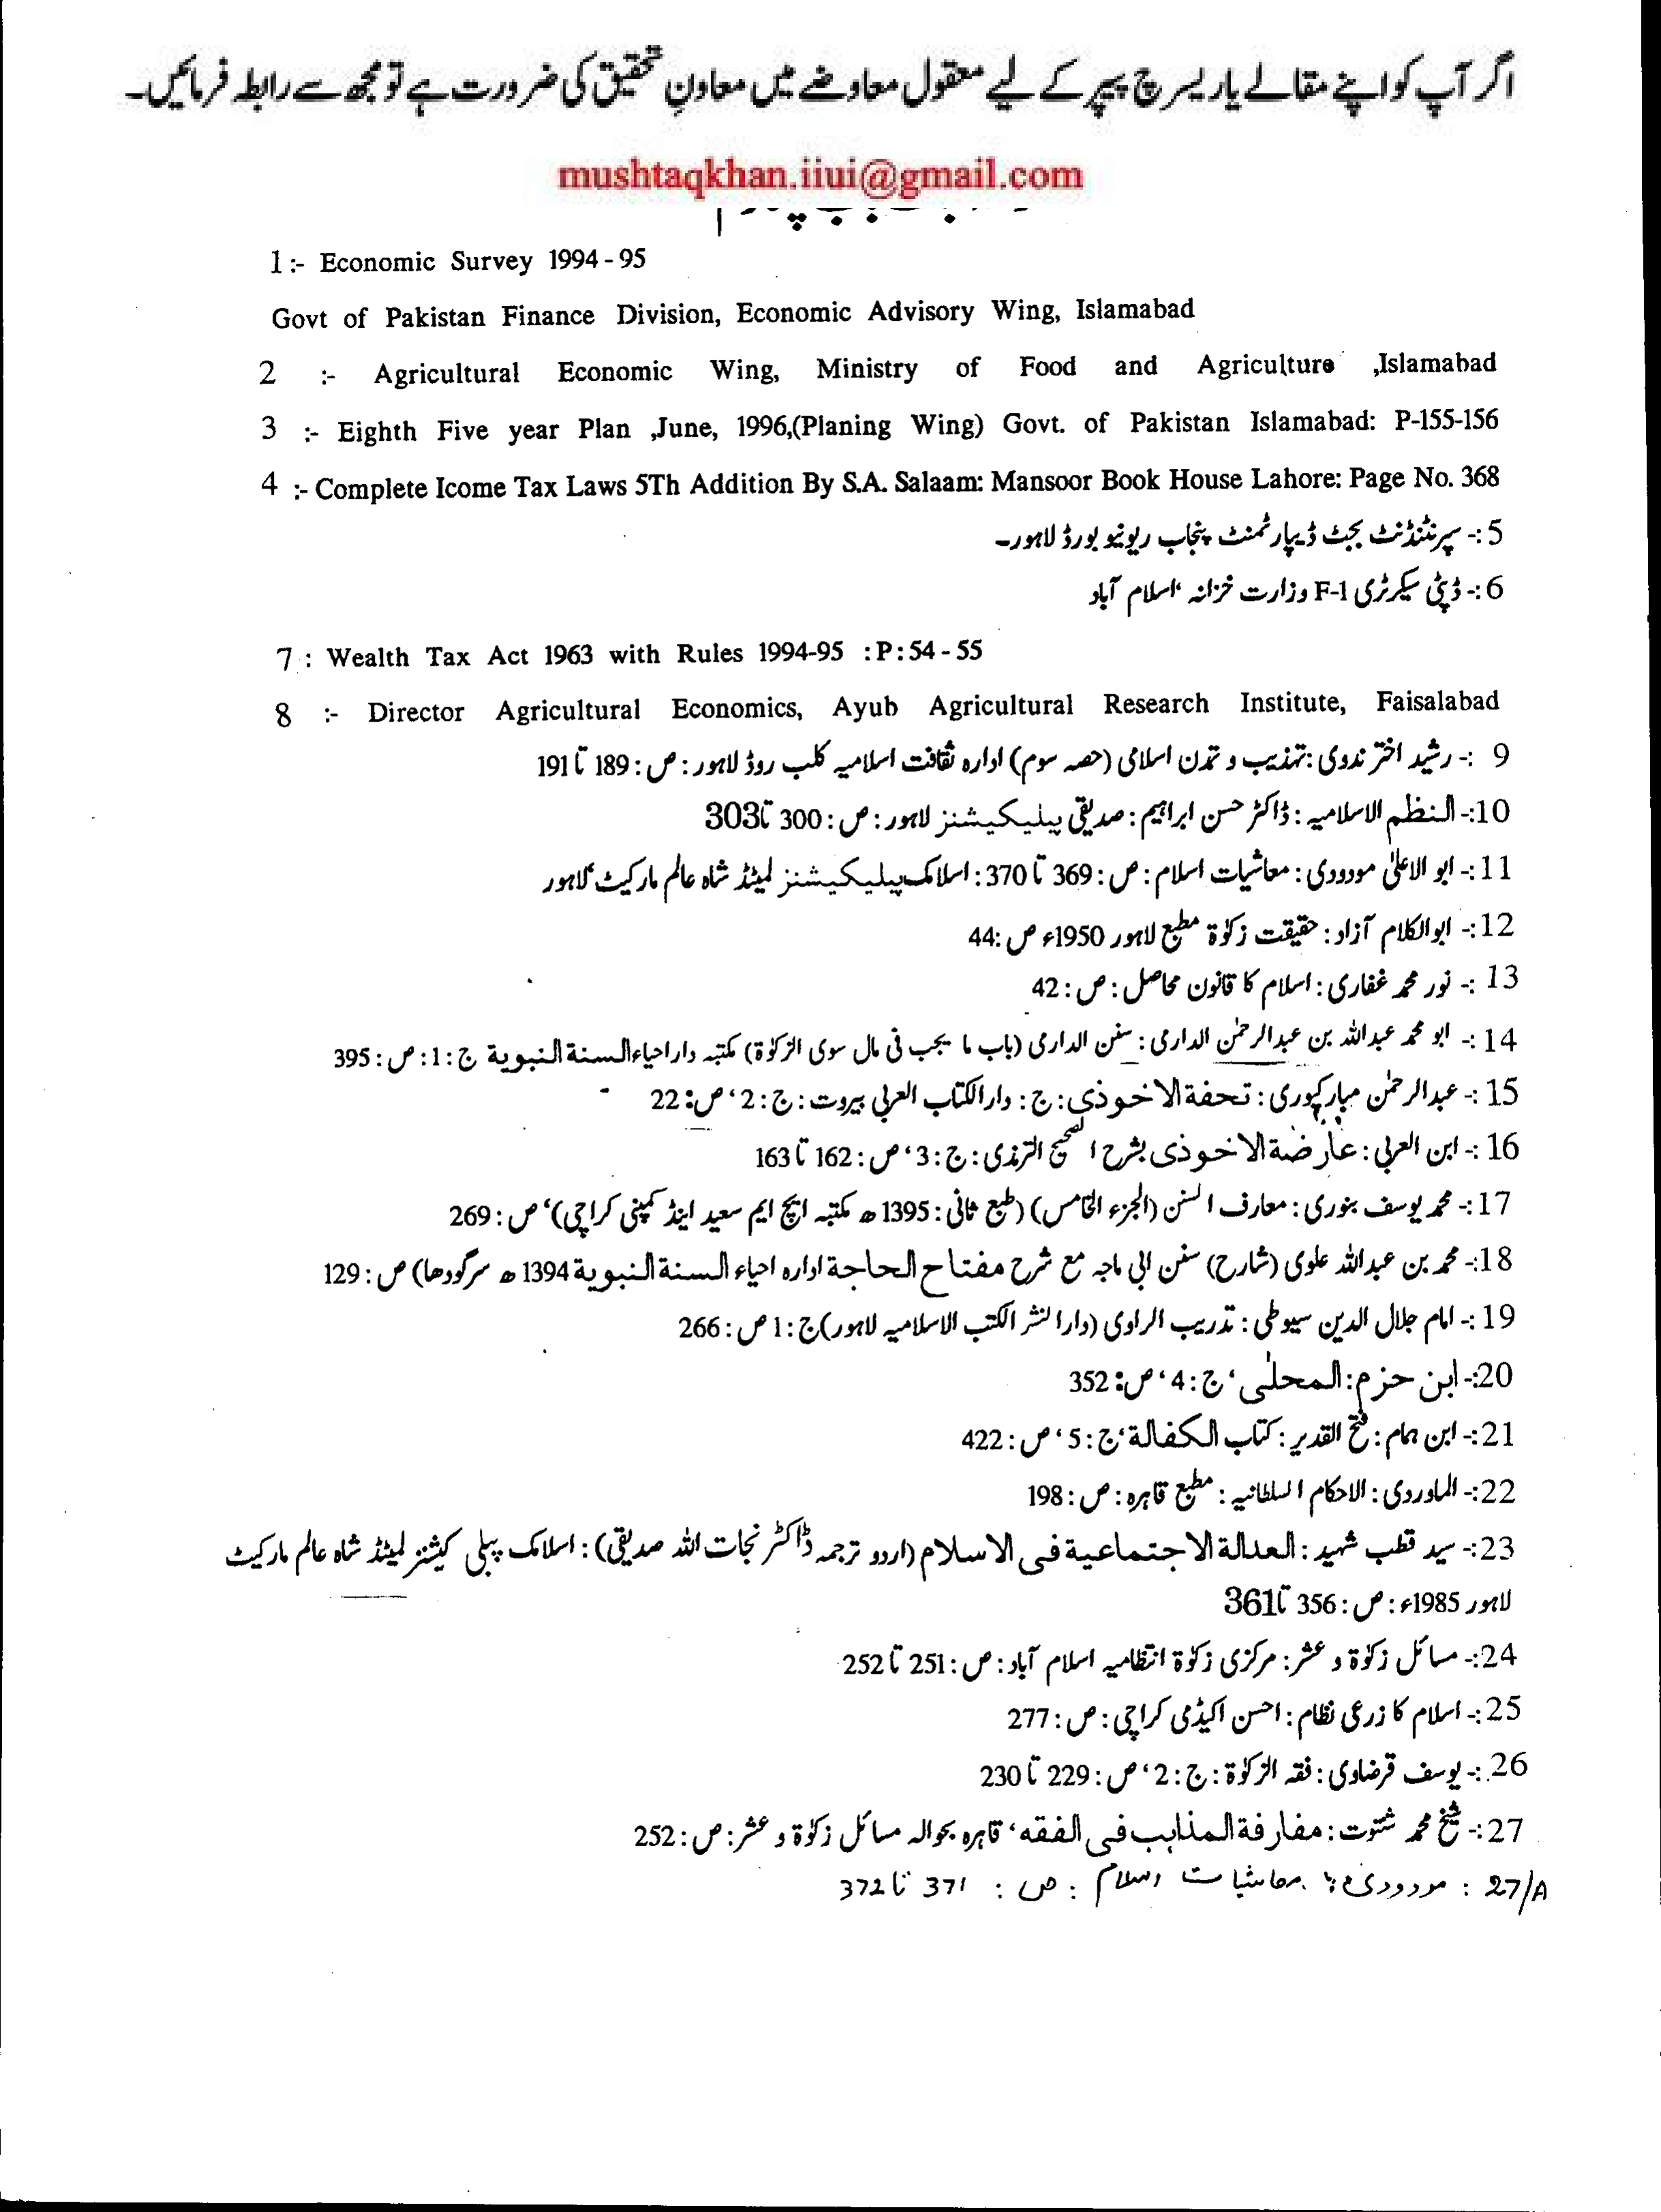 اگر آپ کو اپنے مقالے یا ریسرچ پیپر کے لیے معقول معاوضے میں معاونِ تحقیق کی ضرورت ہے تو مجھ سے رابطہ فرمائیں۔
mushtaqkhan.iiui@gmail.com
1 :- Economic Survey 1994 - 95
Govt of Pakistan Finance Division, Economic Advisory Wing, Islamabad
2 :- Agricultural Economic Wing, Ministry of Food and Agriculture ,Islamabad
3 :- Eighth Five year Plan ,June, 1996,(Planing Wing) Govt. of Pakistan Islamabad: P-155-156
4 :- Complete Icome Tax Laws 5Th Addition By S.A. Salaam: Mansoor Book House Lahore: Page No. 368
5 :- سپرنٹنڈنٹ بجٹ ڈیپارٹمنٹ پنجاب ریونیو بورڈ لاہور۔
6 :- ڈپٹی سیکرٹری F-1 وزارت خزانہ ‘اسلام آباد
7 : Wealth Tax Act 1963 with Rules 1994-95 :P: 54 - 55
8 :- Director Agricultural Economics, Ayub Agricultural Research Institute, Faisalabad
9 :- رشید اختر ندوی : تہذیب و تمدن اسلامی (حصہ سوم) ادارہ ثقافت اسلامیہ کلب روڈ لاہور : ص : 189 تا 191
10:- النظم الاسلامیہ : ڈاکٹر حسن ابراہیم : صدیقی پبلیکیشنز لاہور : ص : 300 تا 303
11:- ابو الاعلیٰ مودودی : معاشیات اسلام : ص : 369 تا 370 : اسلامک پبلیکیشنز لمیٹڈ شاہ عالم مارکیٹ ‘لاہور
12:- ابوالکلام آزاد : حقیقت زکوٰۃ مطبع لاہور 1950ء ص :44
13 :- نور محمد غفاری : اسلام کا قانون محاصل : ص : 42
14 :- ابو محمد عبداللہ بن عبدالرحمٰن الدارمی : سنن الدارمی (باب ما یجب فی مال سوی الزکوٰۃ) مکتبہ دار احیاءالسنة النبوية ج : 1 : ص : 395
15 :- عبدالرحمٰن مبارکپوری : تحفة الاخوذی : ج : دارالکتاب العربی بیروت : ج : 2 ‘ ص : 22
16 :- ابن العربی : عارضة الاخوذی بشرح الصحیح الترمذی : ج : 3 ‘ ص : 162 تا 163
17 :- محمد یوسف بنوری : معارف السنن (الجزء الخامس) (طبع ثانی : 1395ھ مکتبہ ایچ ایم سعید اینڈ کمپنی کراچی) ‘ ص : 269
18:- محمد بن عبداللہ علوی (شارح) سنن ابی ماجہ مع شرح مفتاح الحاجة ادارہ احیاء السنة النبوية 1394ھ سرگودھا) ص : 129
19 :- امام جلال الدین سیوطی : تدریب الراوی (دارالنشر الکتب الاسلامیہ لاہور) ج : 1 ص : 266
20:- ابن حزم : المحلٰی ‘ ج : 4 ‘ ص : 352
21:- ابن ہمام : فتح القدیر : کتاب الکفالة ‘ج : 5 ‘ ص : 422
22:- الماوردی : الاحکام السلطانیہ : مطبع قاہرہ : ص : 198
23:- سید قطب شہید : العدالة الاجتماعیة فی الاسلام (اردو ترجمہ ڈاکٹر نجات اللہ صدیقی) : اسلامک پبلی کیشنز لمیٹڈ شاہ عالم مارکیٹ
لاہور 1985ء : ص : 356 تا 361
24:- مسائل زکوٰۃ و عشر : مرکزی زکوٰۃ انتظامیہ اسلام آباد : ص : 251 تا 252
25:- اسلام کا زرعی نظام : احسن اکیڈمی کراچی : ص : 277
26:- یوسف قرضاوی : فقہ الزکوٰۃ : ج : 2 ‘ ص : 229 تا 230
27:- شیخ محمد شتوت : مفارقة المذاہب فی الفقه ‘ قاہرہ بحوالہ مسائل زکوٰۃ و عشر : ص : 252
27/A : مودودی : معاشیات اسلام : ص : 371 تا 372